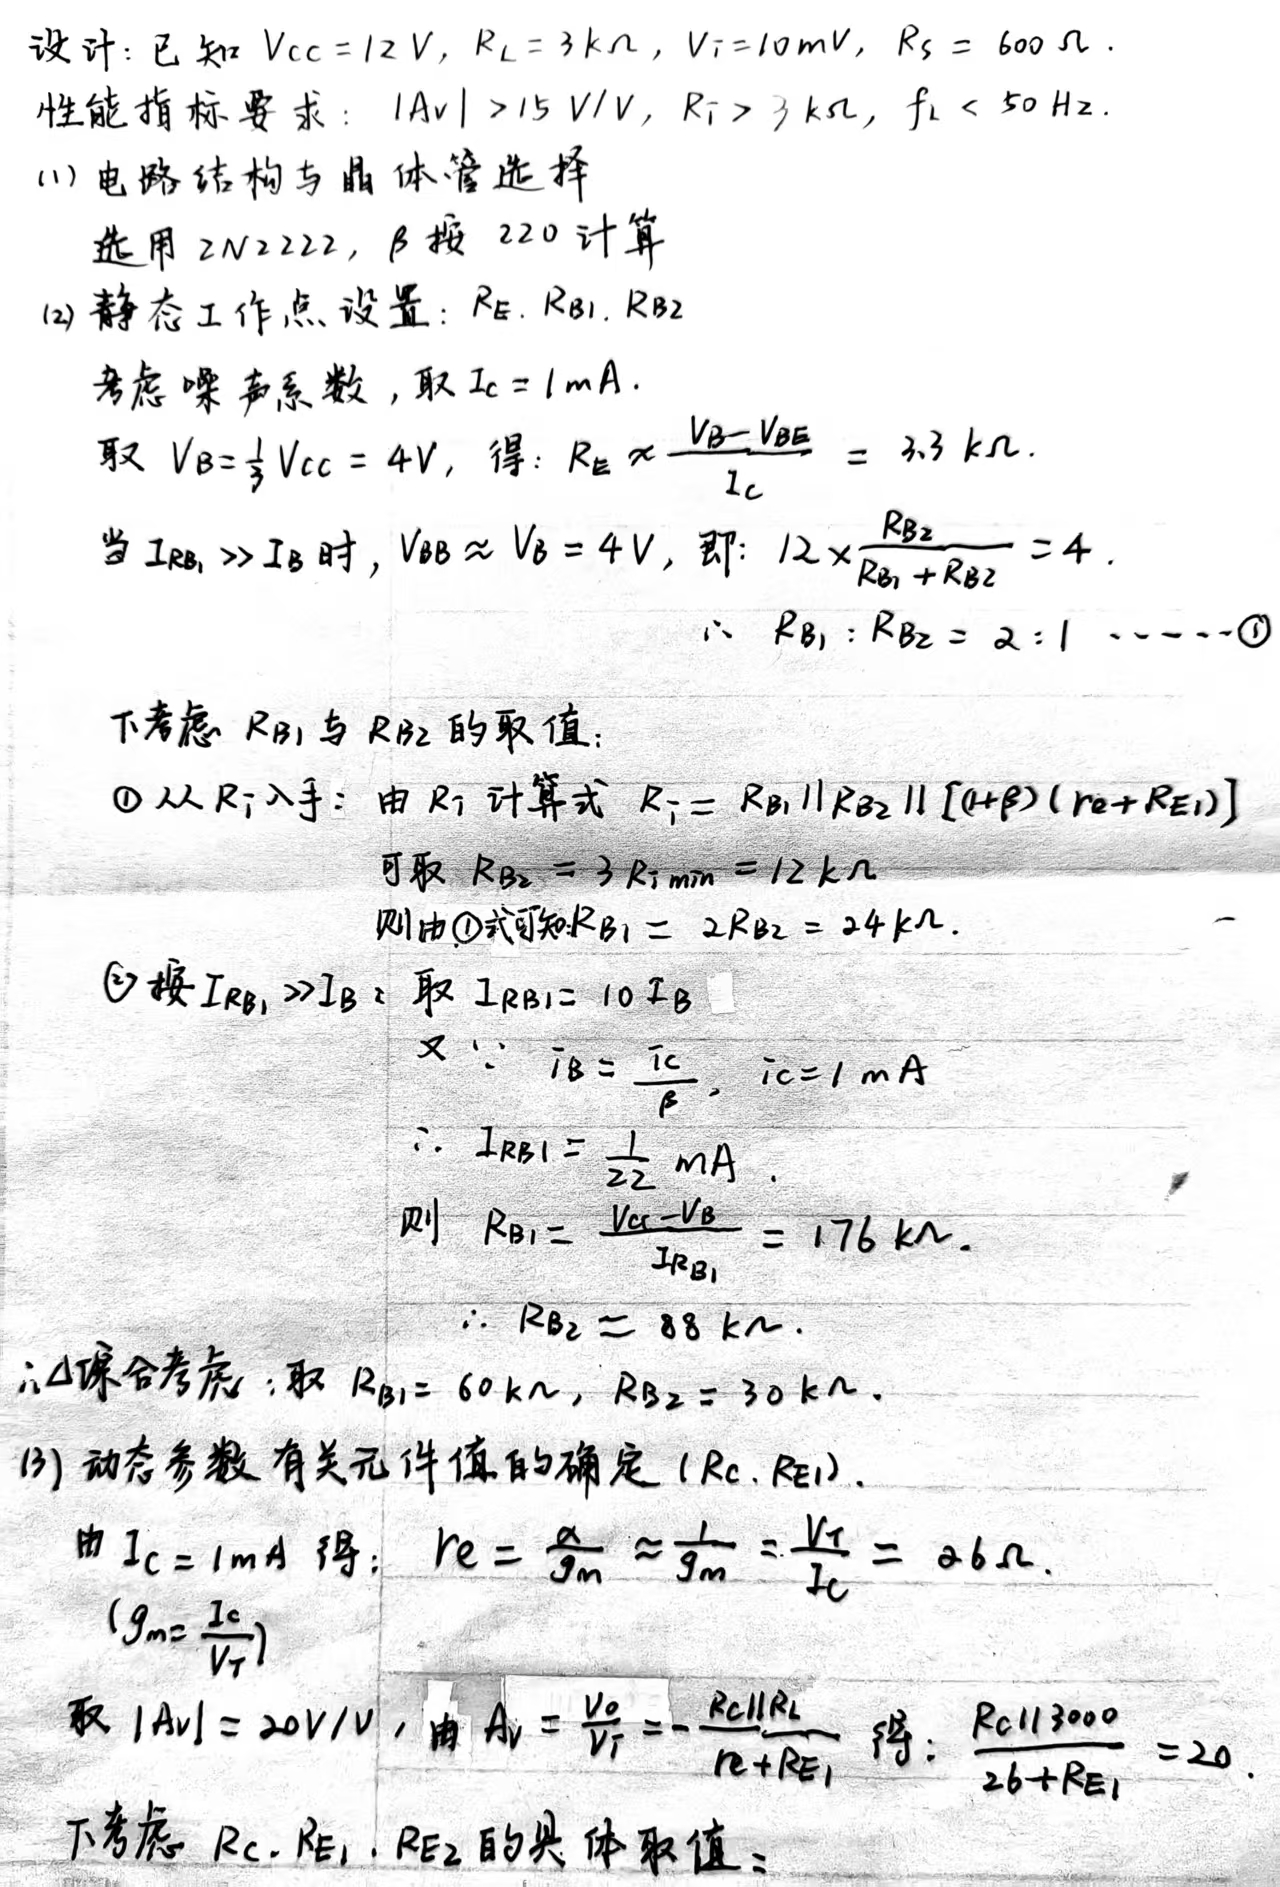 设计：已知 Vcc=12V, RL=3kΩ, Vi=10mV, Rs=600Ω.
性能指标要求：|Av|>15 V/V, Ri>3kΩ, fL<50Hz.
(1) 电路结构与晶体管选择
选用 2N2222, β按 220 计算
(2) 静态工作点设置：RE. RB1. RB2
考虑噪声系数，取 Ic=1mA.
取 VB=1/3 Vcc=4V, 得：RE≈(VB-VBE)/Ic = 3.3 kΩ.
当 IRB1>>IB 时，VBB≈VB=4V, 即：12×RB2/(RB1+RB2)=4.
∴ RB1:RB2=2:1 ------①
下考虑 RB1 与 RB2 的取值：
① 从 Ri 入手：由 Ri 计算式 Ri=RB1||RB2||[(1+β)(re+RE1)]
可取 RB2=3Rimin=12kΩ
则由①式可知:RB1=2RB2=24kΩ.
② 按 IRB1>>IB：取 IRB1=10IB
又∵ iB=ic/β, ic=1mA
∴ IRB1=1/22 mA.
则 RB1=(Vcc-VB)/IRB1=176kΩ.
∴ RB2=88kΩ.
∴△综合考虑：取 RB1=60kΩ, RB2=30kΩ.
(3) 动态参数有关元件值的确定 (Rc. RE1).
由 Ic=1mA 得：re=α/gm≈1/gm=VT/Ic=26Ω.
(gm=Ic/VT)
取 |Av|=20V/V, 由 Av=Vo/Vi=-(Rc||RL)/(re+RE1) 得：(Rc||3000)/(26+RE1)=20.
下考虑 Rc. RE1. RE2 的具体取值：